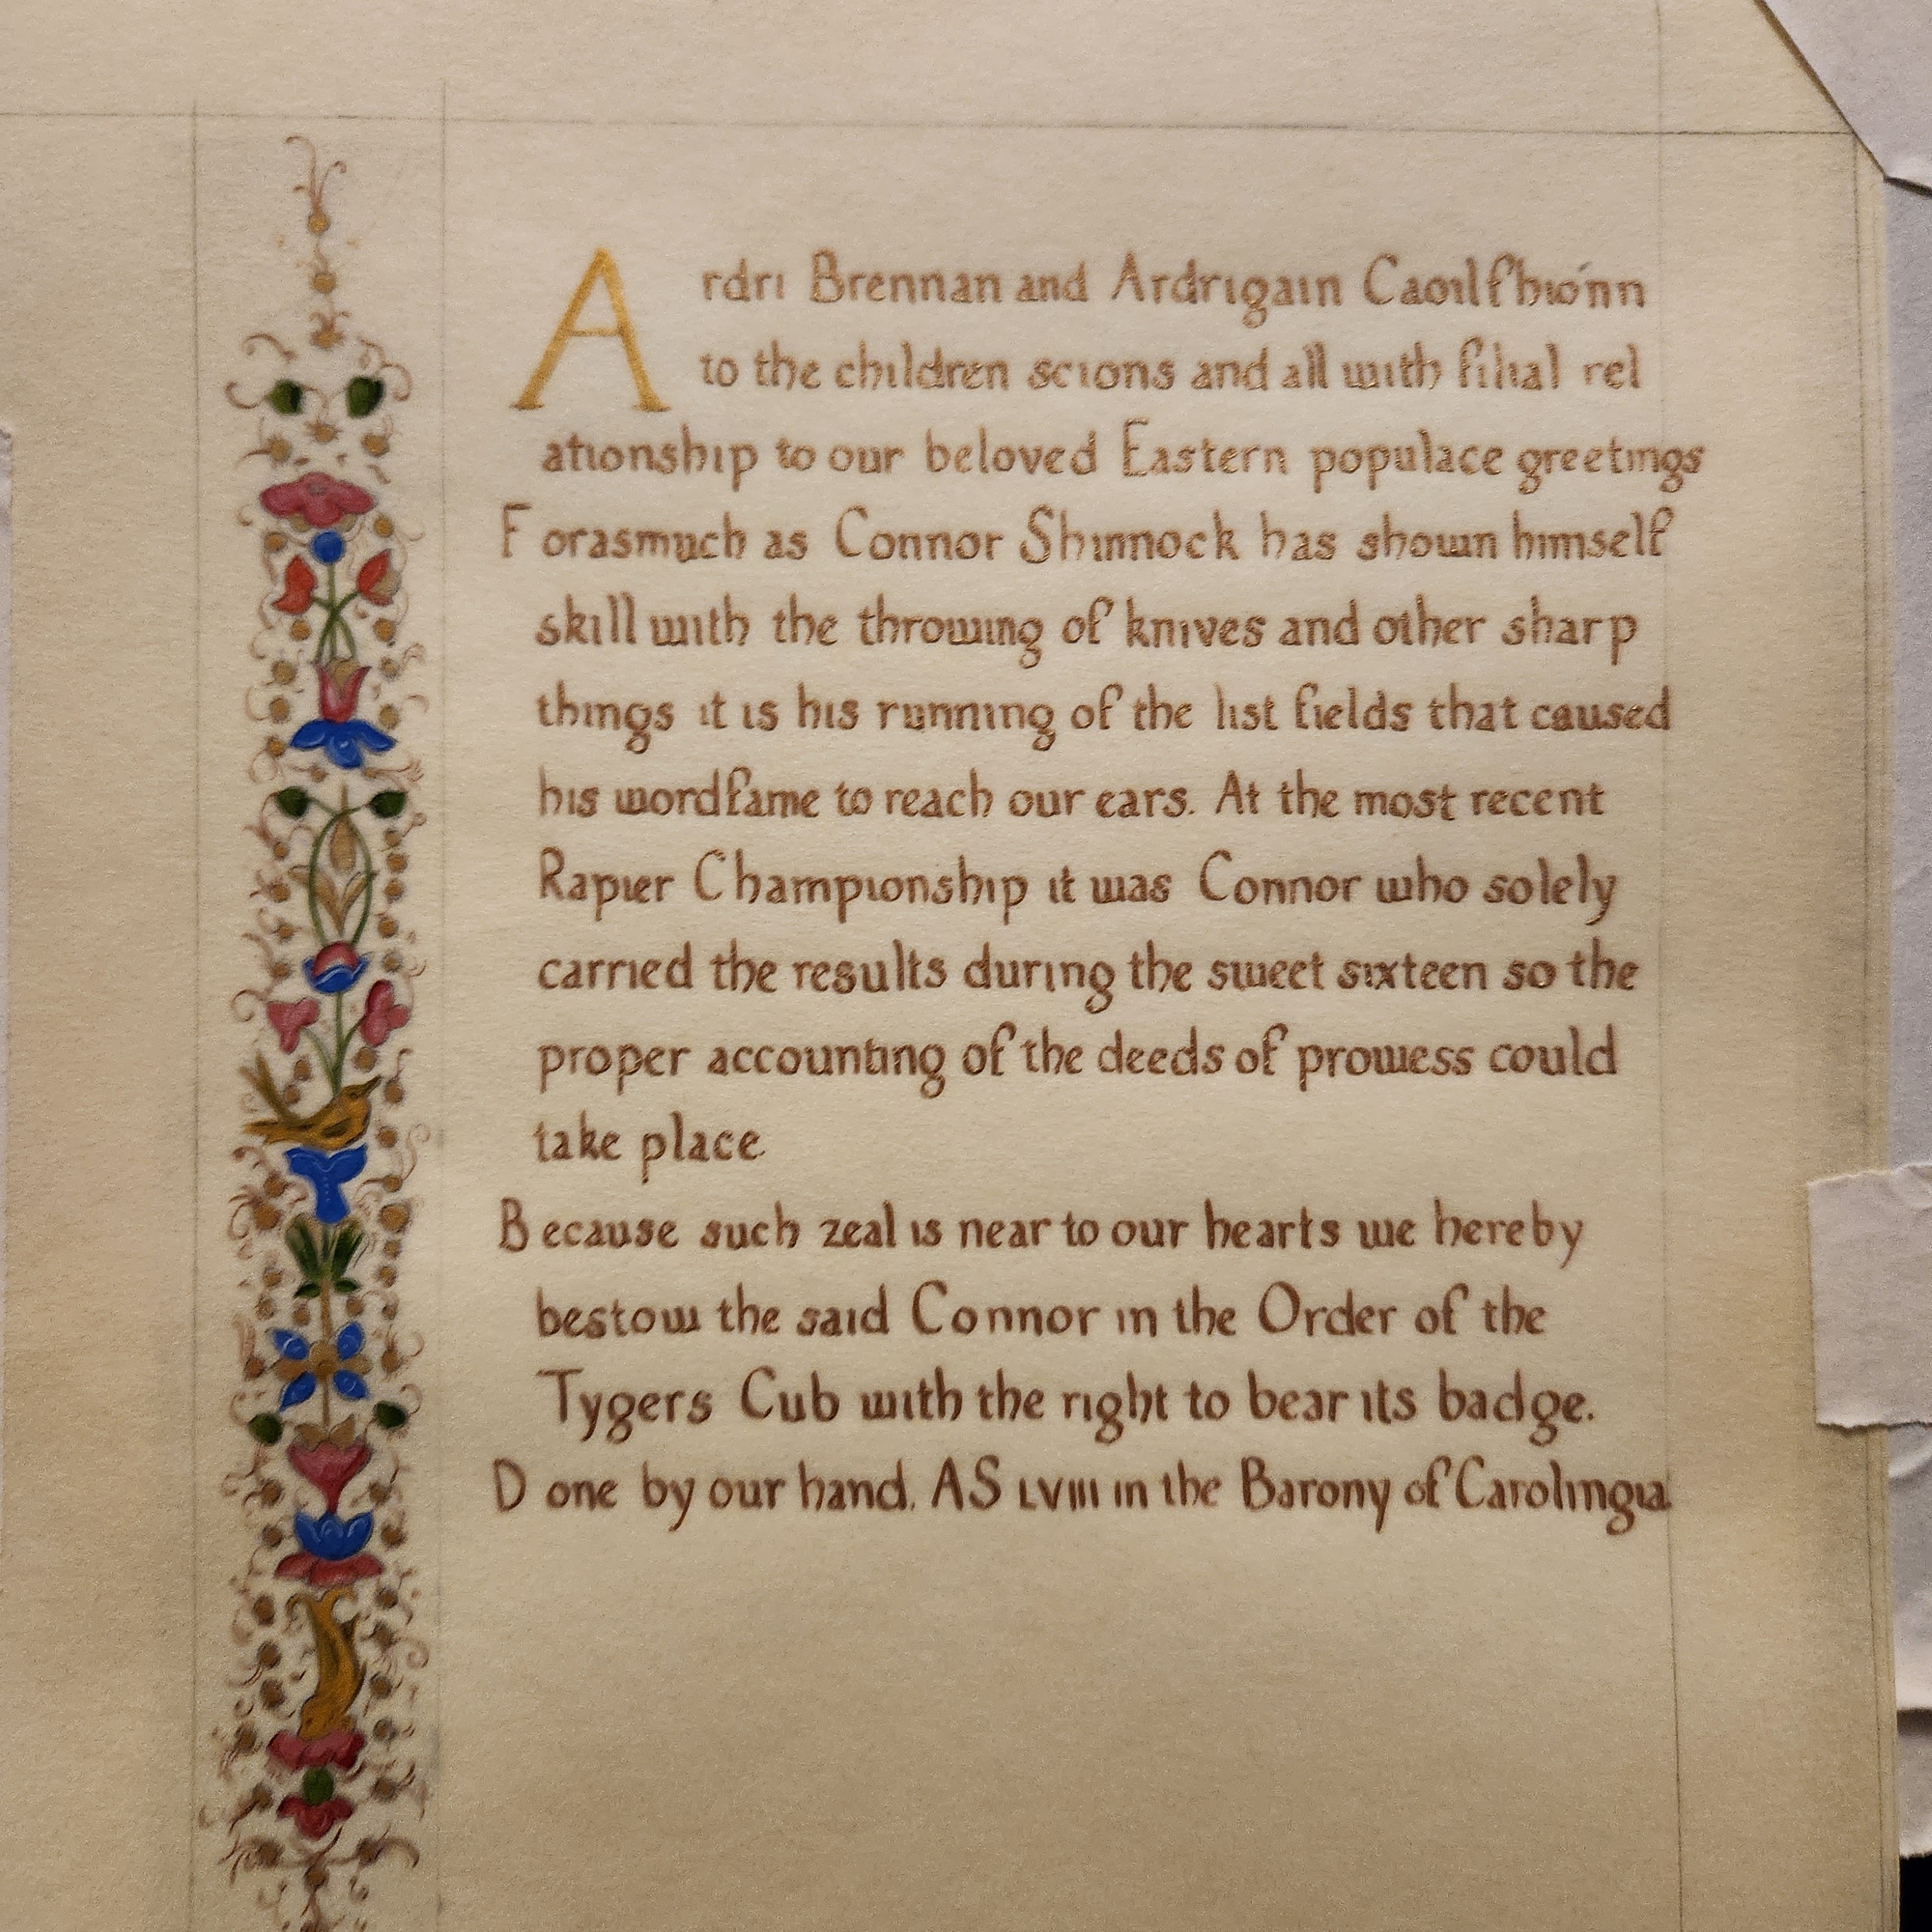 Ardri Brennan and Ardrigain Caoilfhionn
to the children scions and all with filial rel
ationship to our beloved Eastern populace greetings
Forasmuch as Connor Shinnock has shown himself
skill with the throwing of knives and other sharp
things it is his running of the list fields that caused
his wordfame to reach our ears. At the most recent
Rapier Championship it was Connor who solely
carried the results during the sweet sixteen so the
proper accounting of the deeds of prowess could
take place.
Because such zeal is near to our hearts we hereby
bestow the said Connor in the Order of the
Tygers Cub with the right to bear its badge.
Done by our hand. AS LVIII in the Barony of Carolingia